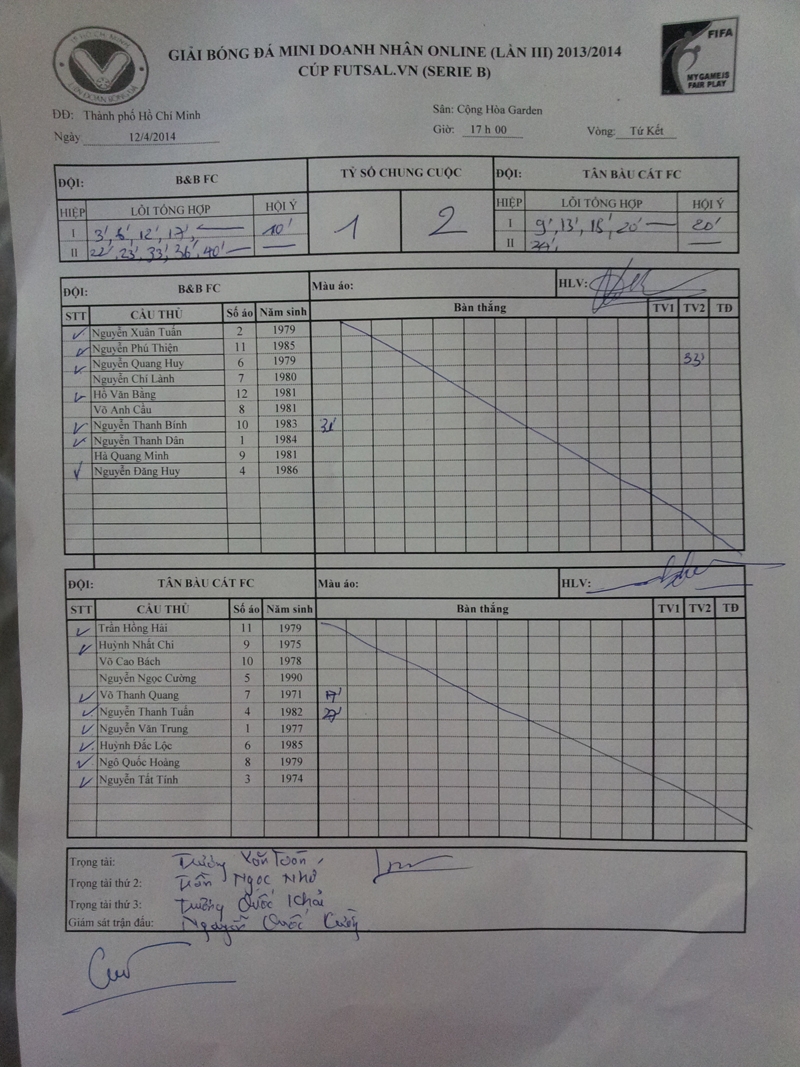 GIẢI BÓNG ĐÁ MINI DOANH NHÂN ONLINE (LẦN III) 2013/2014
CÚP FUTSAL.VN (SERIE B)
FIFA
MY GAME IS
FAIR PLAY
ĐĐ: Thành phố Hồ Chí Minh
Sân: Cộng Hòa Garden
Ngày 12/4/2014
Giờ: 17 h 00 Vòng: Tứ Kết
ĐỘI: B&B FC TỶ SỐ CHUNG CUỘC ĐỘI: TÂN BÀU CÁT FC
HIỆP LỖI TỔNG HỢP HỘI Ý 1 2 HIỆP LỖI TỔNG HỢP HỘI Ý
I 3', 6', 12', 17', 10' I 9', 13', 18', 20' 20'
II 22', 23', 33', 36', 40' II
ĐỘI: B&B FC Màu áo: HLV:
STT CẦU THỦ Số áo Năm sinh Bàn thắng TV1 TV2 TĐ
Nguyễn Xuân Tuấn 2 1979
Nguyễn Phú Thiện 11 1985
Nguyễn Quang Huy 6 1979 33'
Nguyễn Chí Lành 7 1980
Hồ Văn Bằng 12 1981
Võ Anh Cầu 8 1981
Nguyễn Thanh Bính 10 1983
Nguyễn Thanh Dân 1 1984
Hà Quang Minh 9 1981
Nguyễn Đăng Huy 4 1986
ĐỘI: TÂN BÀU CÁT FC Màu áo: HLV:
STT CẦU THỦ Số áo Năm sinh Bàn thắng TV1 TV2 TĐ
Trần Hồng Hải 11 1979
Huỳnh Nhất Chi 9 1975
Võ Cao Bách 10 1978
Nguyễn Ngọc Cường 5 1990
Võ Thanh Quang 7 1971
Nguyễn Thanh Tuấn 4 1982
Nguyễn Văn Trung 1 1977
Huỳnh Đắc Lộc 6 1985
Ngô Quốc Hoàng 8 1979
Nguyễn Tất Tính 3 1974
Trọng tài: Trương Văn Toàn
Trọng tài thứ 2: Trần Ngọc Nhớ
Trọng tài thứ 3: Trương Quốc Khải
Giám sát trận đấu: Nguyễn Quốc Cường